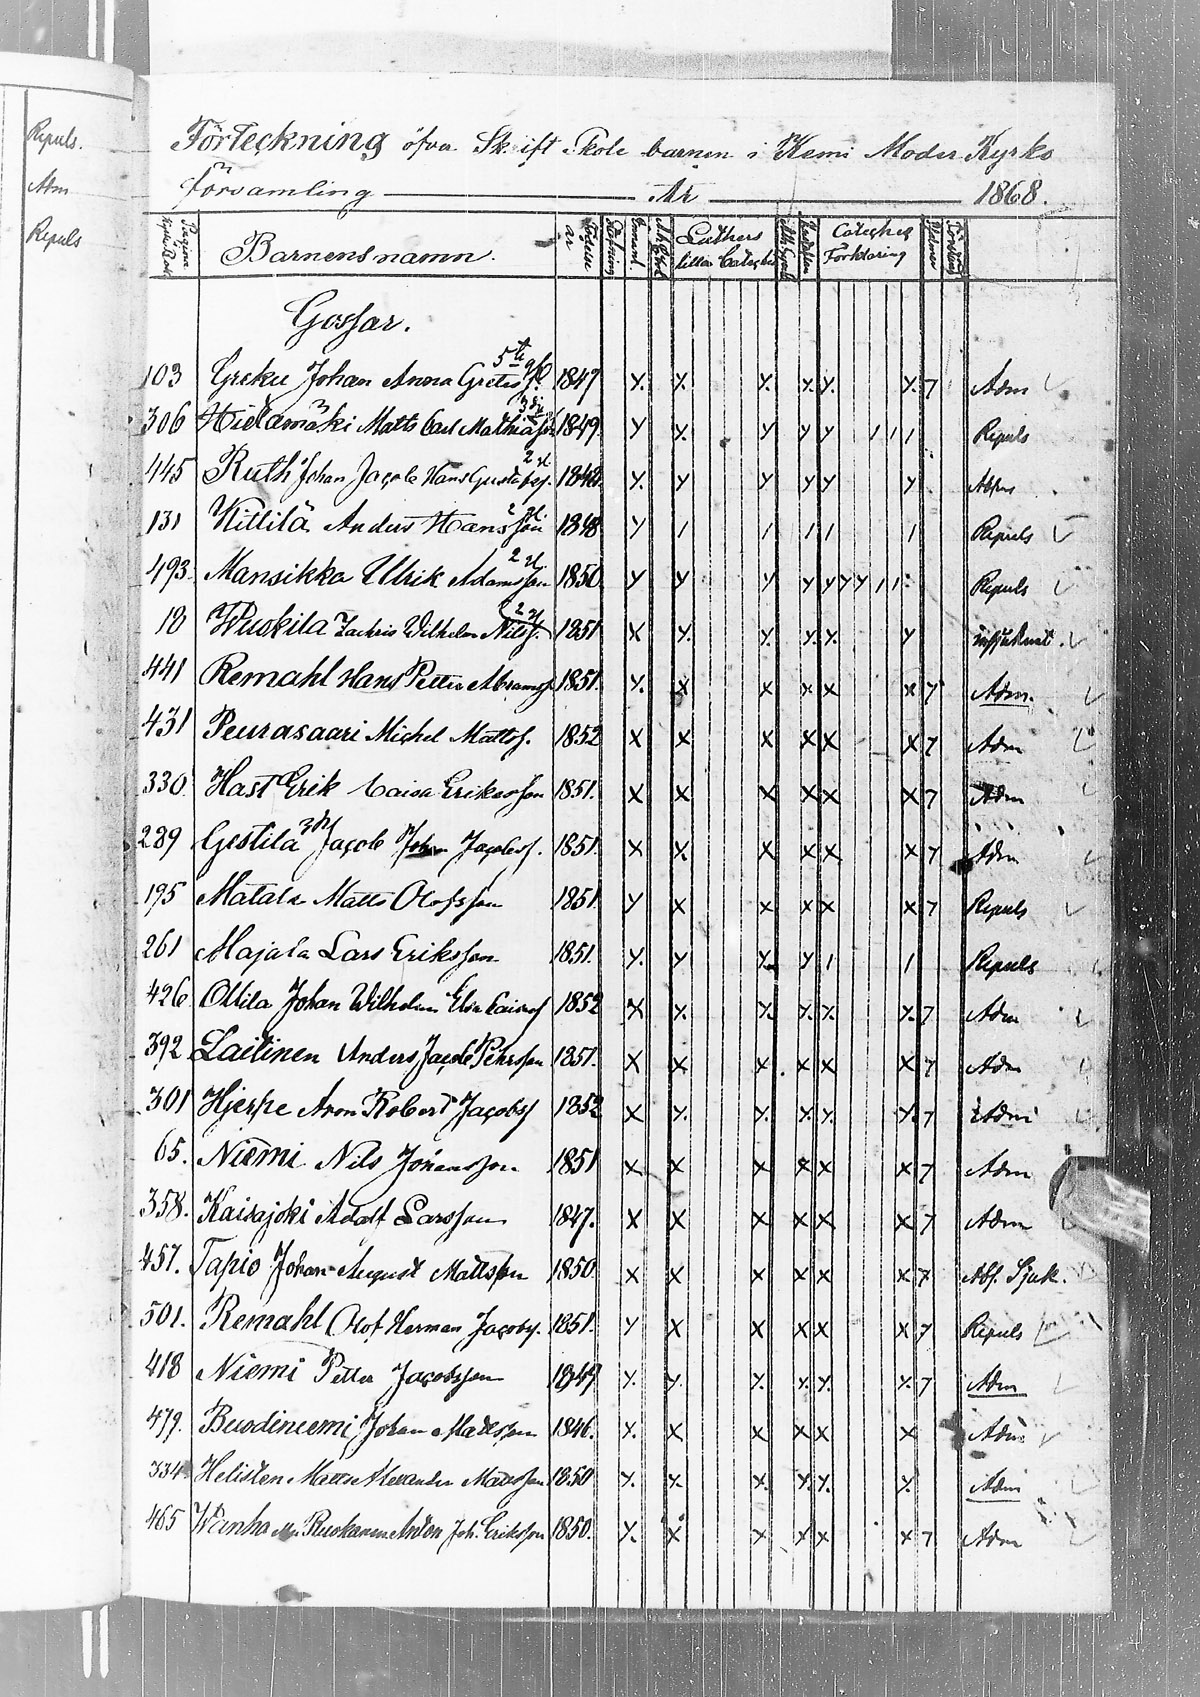 Repuls.
Adm
Repuls
Förteckning öfver Skrift Skole barnen i Kemi Moder Kyrko
församling År 1868.
Pagina Barnens namn. Födelse år Innant. Luthers lilla Categhes Categhes Förklaring
Gossar.
103 Greku Johan Anna Gretas 5te 1847 Y. Y. Y. Y. Y. Y. 7 Adm
306 Hietamäki Matts Carl Mathiasson 1849 Y Y. Y Y Y 1 1 1 Repuls
445 Ruth Johan Jacob Hans Gustafss. 1848 Y. Y Y Y Y Y
131 Kittilä Anders Hansson 1848 Y 1 1 1 1 1 Repuls
493. Mansikka Ulrik Adamsson 1850 Y Y Y Y Y Y Y 1 1 Repuls
10 Wuokila Zachris Wilhelm Nilss. 1851 X Y. Y. Y. Y. Y
441 Remahl Hans Petter Abramss. 1851. Y. X X X X X 7 Adm.
431 Peurasaari Michel Mattss. 1852 X X X X X X 7 Adm
330. Hast Erik Caisa Eriksson 1851. X X X X X X 7 Adm
289 Gestila Jacob Johan Jacobss. 1851. X X. X X X X 7 Adm
195 Matala Matts Olofsson 1851. Y X X X X X 7 Repuls
261 Majala Lars Eriksson 1851. Y. Y Y. Y 1 1 Repuls
426 Ollila Johan Wilhelm Elsa Caisas 1852 X Y. Y. Y. Y. Y. 7 Adm
392 Laitinen Anders Jacob Pehrsson 1851. X X X X X X 7 Adm
301 Hjerpe Aron Robert Jacobss 1852 X Y. Y. Y. Y. Y. 7 Adm
65. Niemi Nils Johansson 1851 X X X X X X 7 Adm
358. Kaisajoki Adolf Larsson 1847. X X X X X X 7 Adm
457. Tapio Johan August Mattsson 1850. X X X X X X 7 Abs. Sjuk.
501. Remahl Olof Herman Jacobss. 1851. Y X X X X X 7 Repuls
418 Niemi Petter Jacobsson 1849 Y. Y. Y. Y. Y. Y. 7 Adm
479. Johan Mattsson 1846. Y. X X X X X Adm
334. Helisten Matts Alexander Mattsson 1850 Y. Y. Y. Y. Y. Y. Adm
465 Wanha Ruokanen Anton Joh. Eriksson 1850. Y. X X X X X 7 Adm